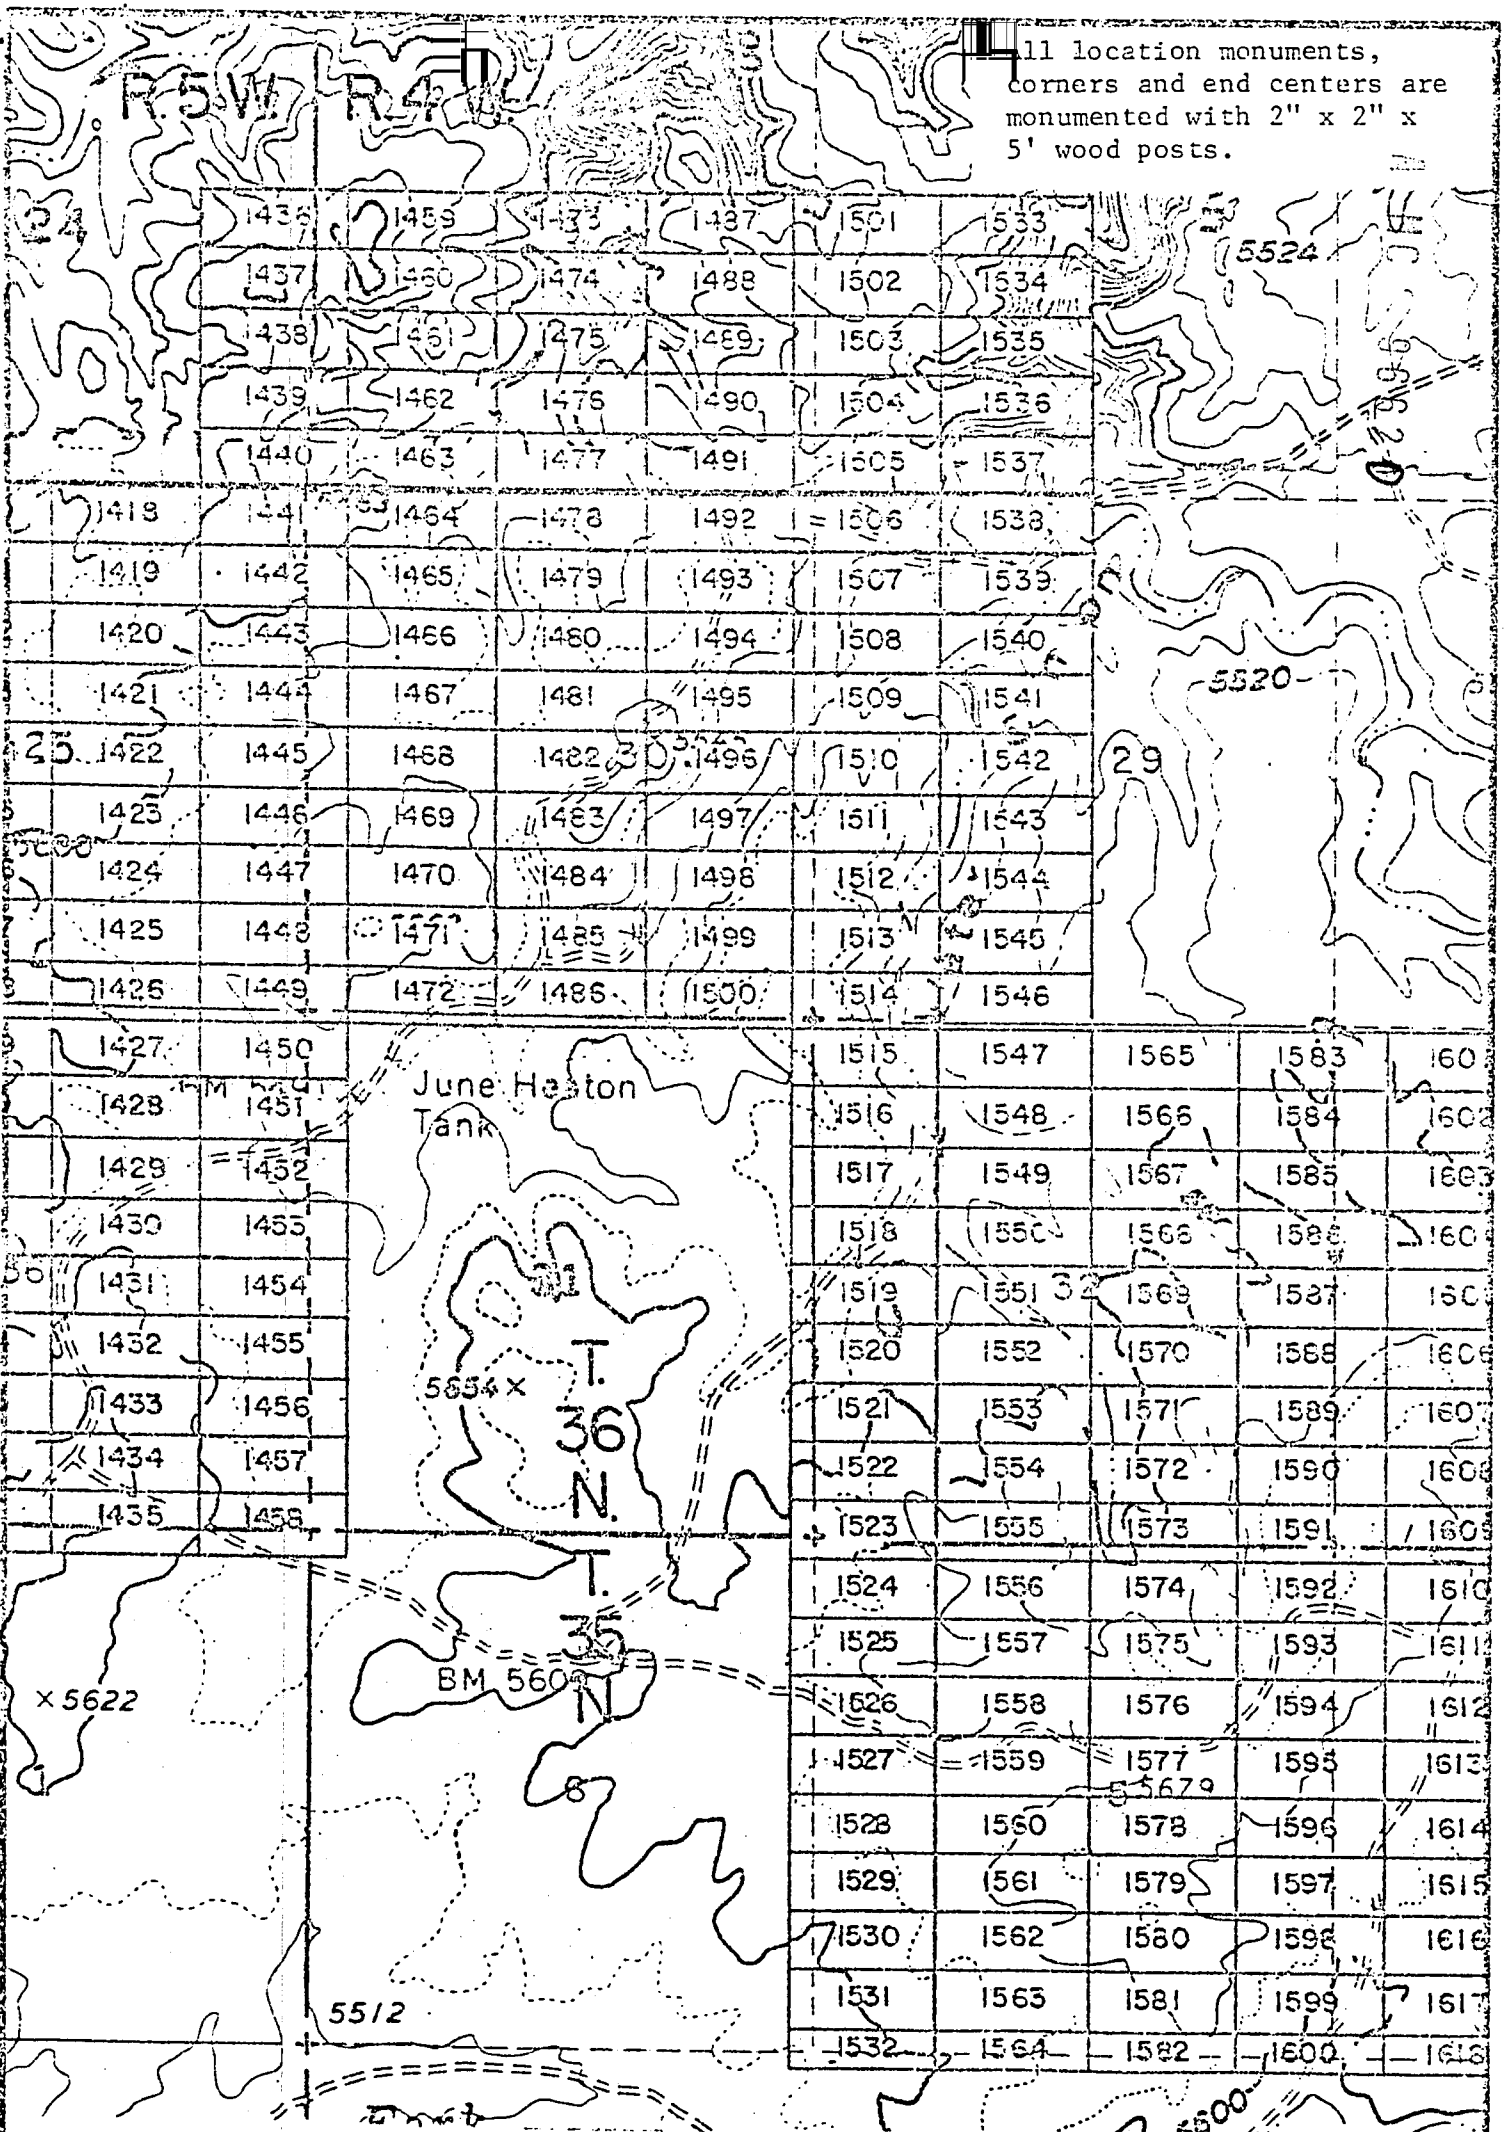 R.5W. R.4W.
All location monuments,
corners and end centers are
monumented with 2" x 2" x
5' wood posts.
24 1436 1459 1473 1487 1501 1533
5524
1437 1460 1474 1488 1502 1534
1438 1461 1475 1489 1503 1535
1439 1462 1476 1490 1504 1536
1440 1463 1477 1491 1505 1537
1418 1441 1464 1478 1492 1506 1538
1419 1442 1465 1479 1493 1507 1539
1420 1443 1466 1480 1494 1508 1540
1421 1444 1467 1481 1495 1509 1541
5520
25 1422 1445 1468 1482 30 1496 1510 1542 29
1423 1446 1469 1483 1497 1511 1543
1424 1447 1470 1484 1498 1512 1544
1425 1448 1471 1485 1499 1513 1545
1426 1449 1472 1486 1500 1514 1546
1427 1450 1515 1547 1565 1583 160
June Heaton
Tank
1428 1451 1516 1548 1566 1584 1602
1429 1452 1517 1549 1567 1585 1603
1430 1453 1518 1550 1568 1586 160
1431 1454 1519 1551 32 1569 1587 160
1432 1455 1520 1552 1570 1588 1606
T.
36
N.
5654 ×
1433 1456 1521 1553 1571 1589 1607
1434 1457 1522 1554 1572 1590 1608
1435 1458 1523 1555 1573 1591 1609
T.
35
N
1524 1556 1574 1592 1610
1525 1557 1575 1593 1611
BM 560
× 5622
1526 1558 1576 1594 1612
1527 1559 1577 1595 1613
5679
6
1528 1560 1578 1596 1614
1529 1561 1579 1597 1615
1530 1562 1580 1598 1616
1531 1563 1581 1599 1617
5512
1532 1564 1582 1600 1618
5600